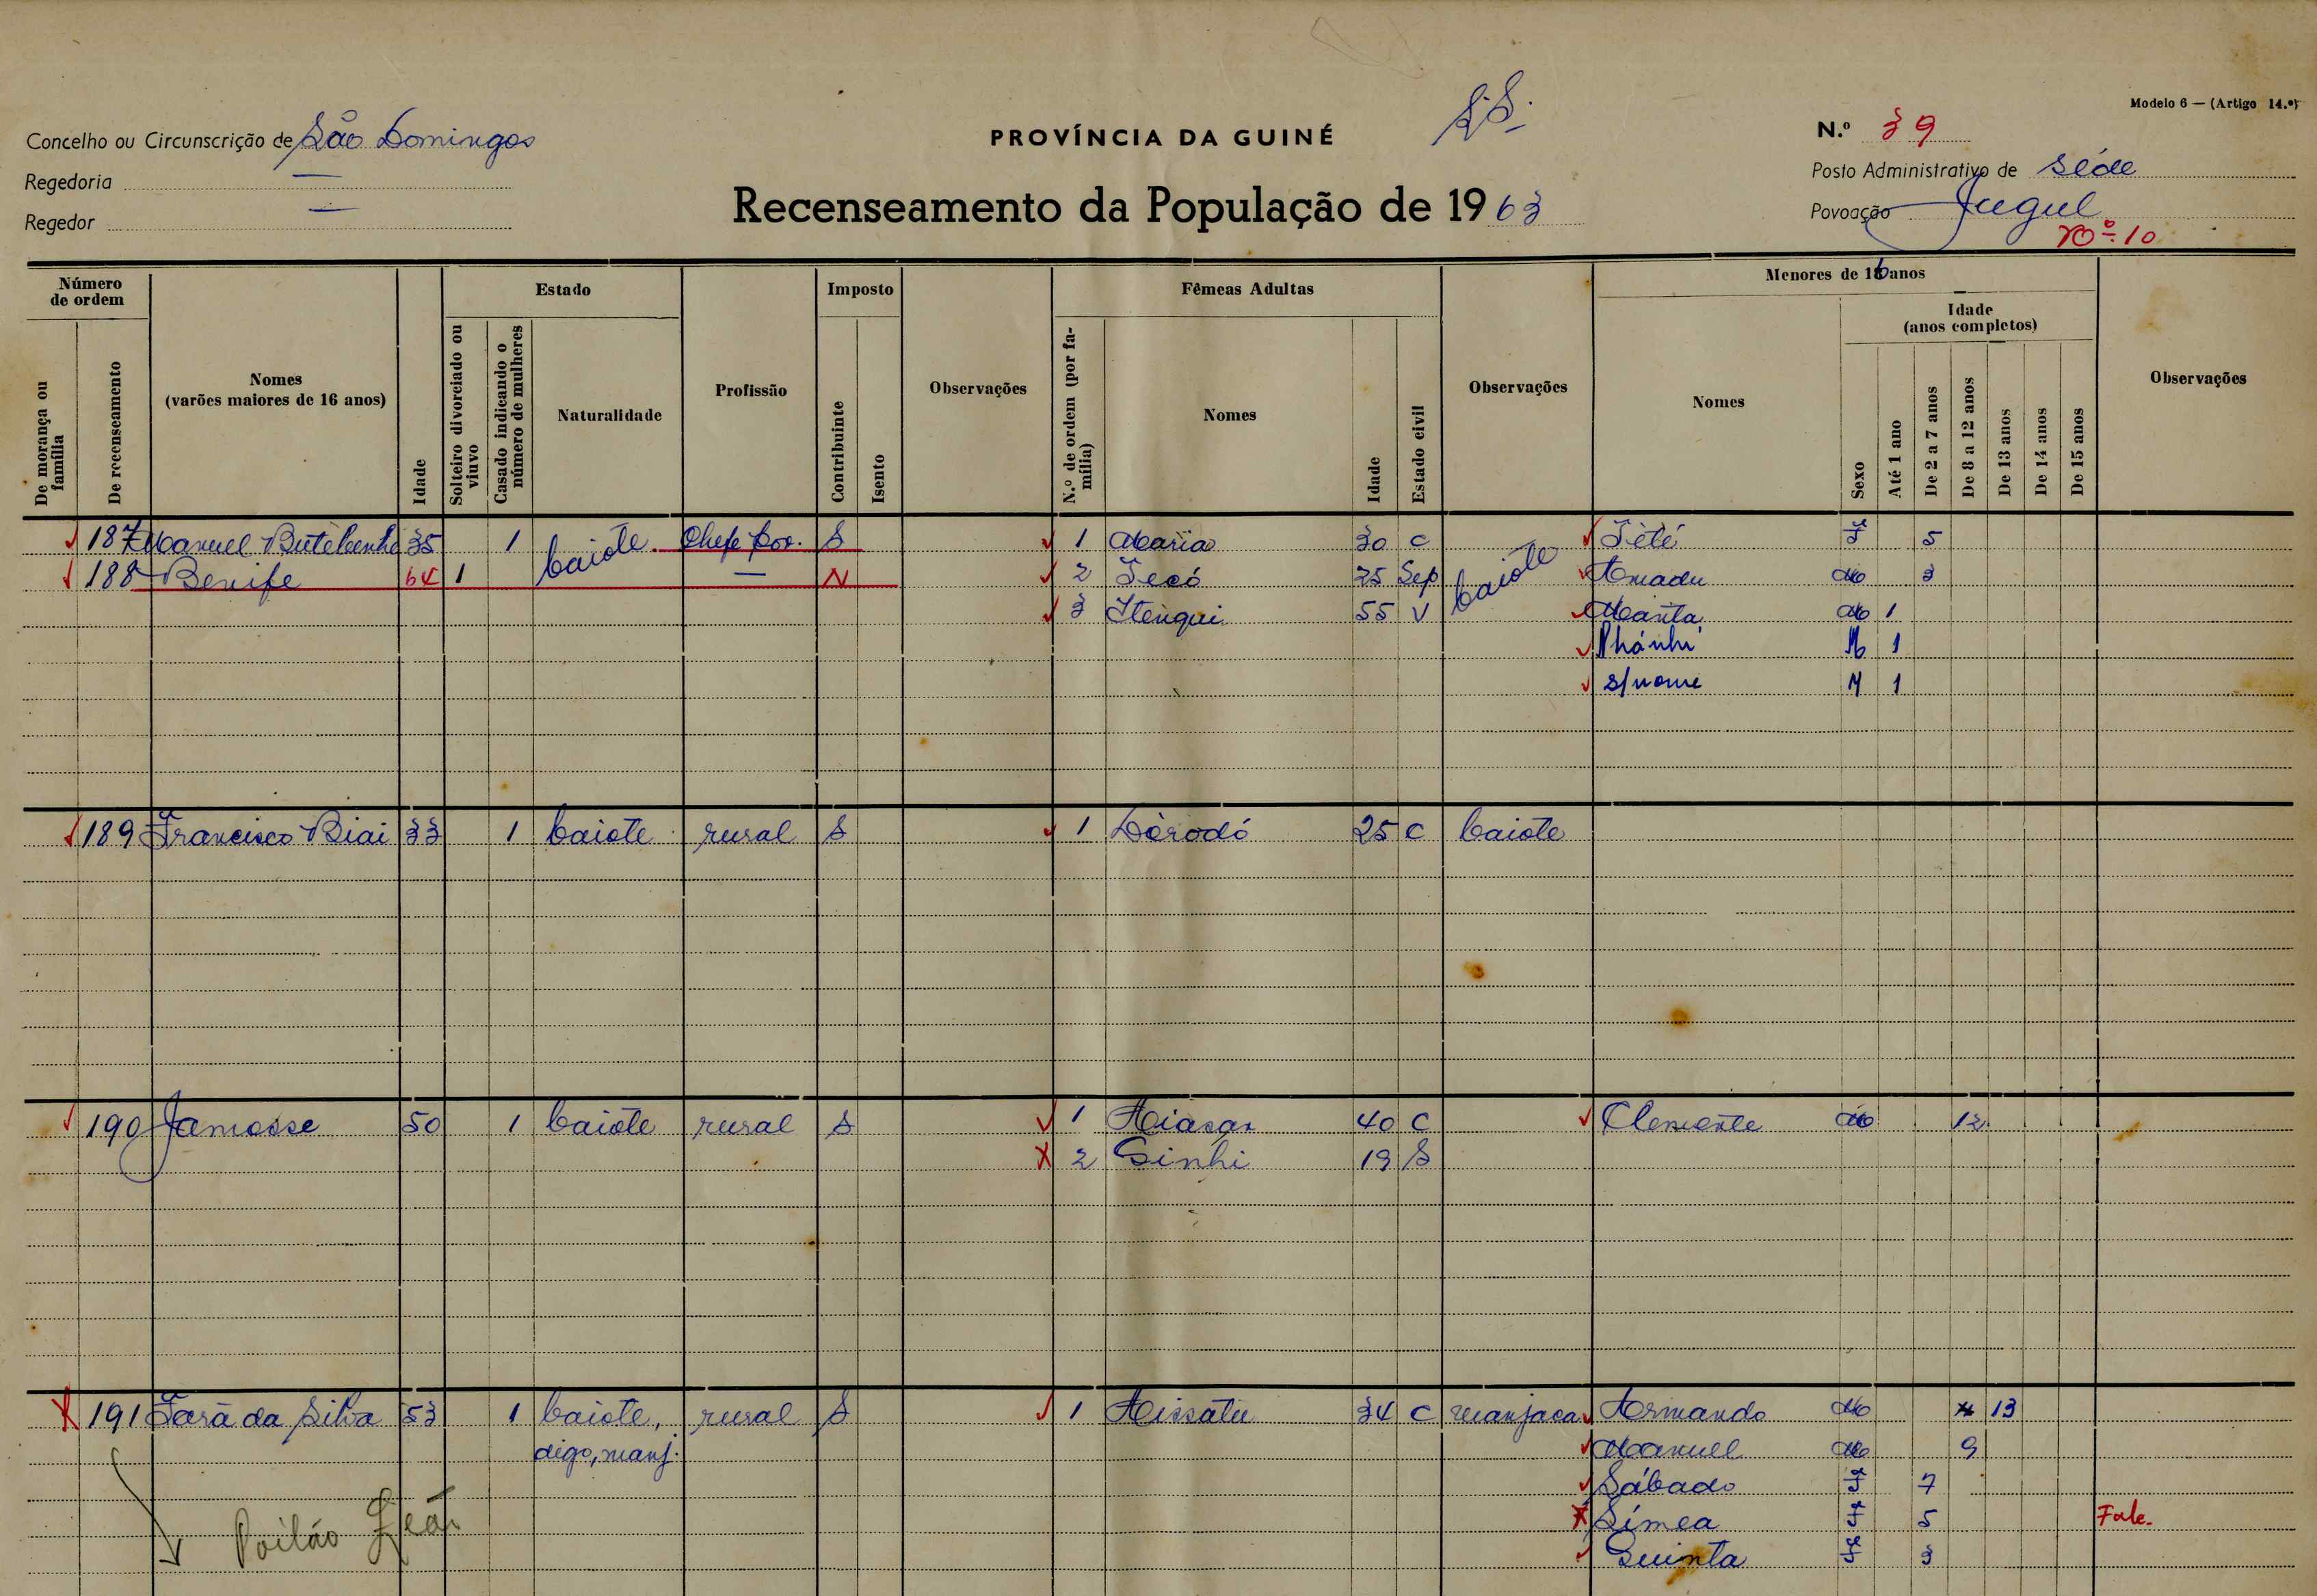 Modelo 6 — (Artigo 14.º)
Concelho ou Circunscrição de São Domingos
PROVÍNCIA DA GUINÉ
N.º 39
Regedoria —
Posto Administrativo de Séde
Regedor —
Recenseamento da População de 1963
Povoação Jugul
Nº 10
Número de ordem
Estado
Imposto
Fêmeas Adultas
Menores de 16 anos
Idade
(anos completos)
De morança ou família
De recenseamento
Nomes
(varões maiores de 16 anos)
Idade
Solteiro divorciado ou viuvo
Casado indicando o número de mulheres
Naturalidade
Profissão
Contribuinte
Isento
Observações
N.º de ordem (por família)
Nomes
Idade
Estado civil
Observações
Nomes
Sexo
Até 1 ano
De 2 a 7 anos
De 8 a 12 anos
De 13 anos
De 14 anos
De 15 anos
Observações
187 Manuel 35 1 baiote Chefe pov. S 1 Maria 30 C baiote Tété F 5
188 Benife 64 1 — N 2 Tecó 25 Sep Amadu M 3
3 Itengui 55 V M 1
Nhánhi M 1
s/nome M 1
189 Francisco Biai 33 1 baiote rural S 1 Dòrodó 25 C baiote
190 Jamosse 50 1 baiote rural S 1 40 C Clemente M 12
2 Sinhi 19 S
191 Fará da Silva 53 1 baiote, rural S 1 Aissatu 34 C manjaca Armando M 13
digo, manj. Manuel M 9
Sábado F 7
Poilão Leão Símea F 5 Fale.
Quinta F 3